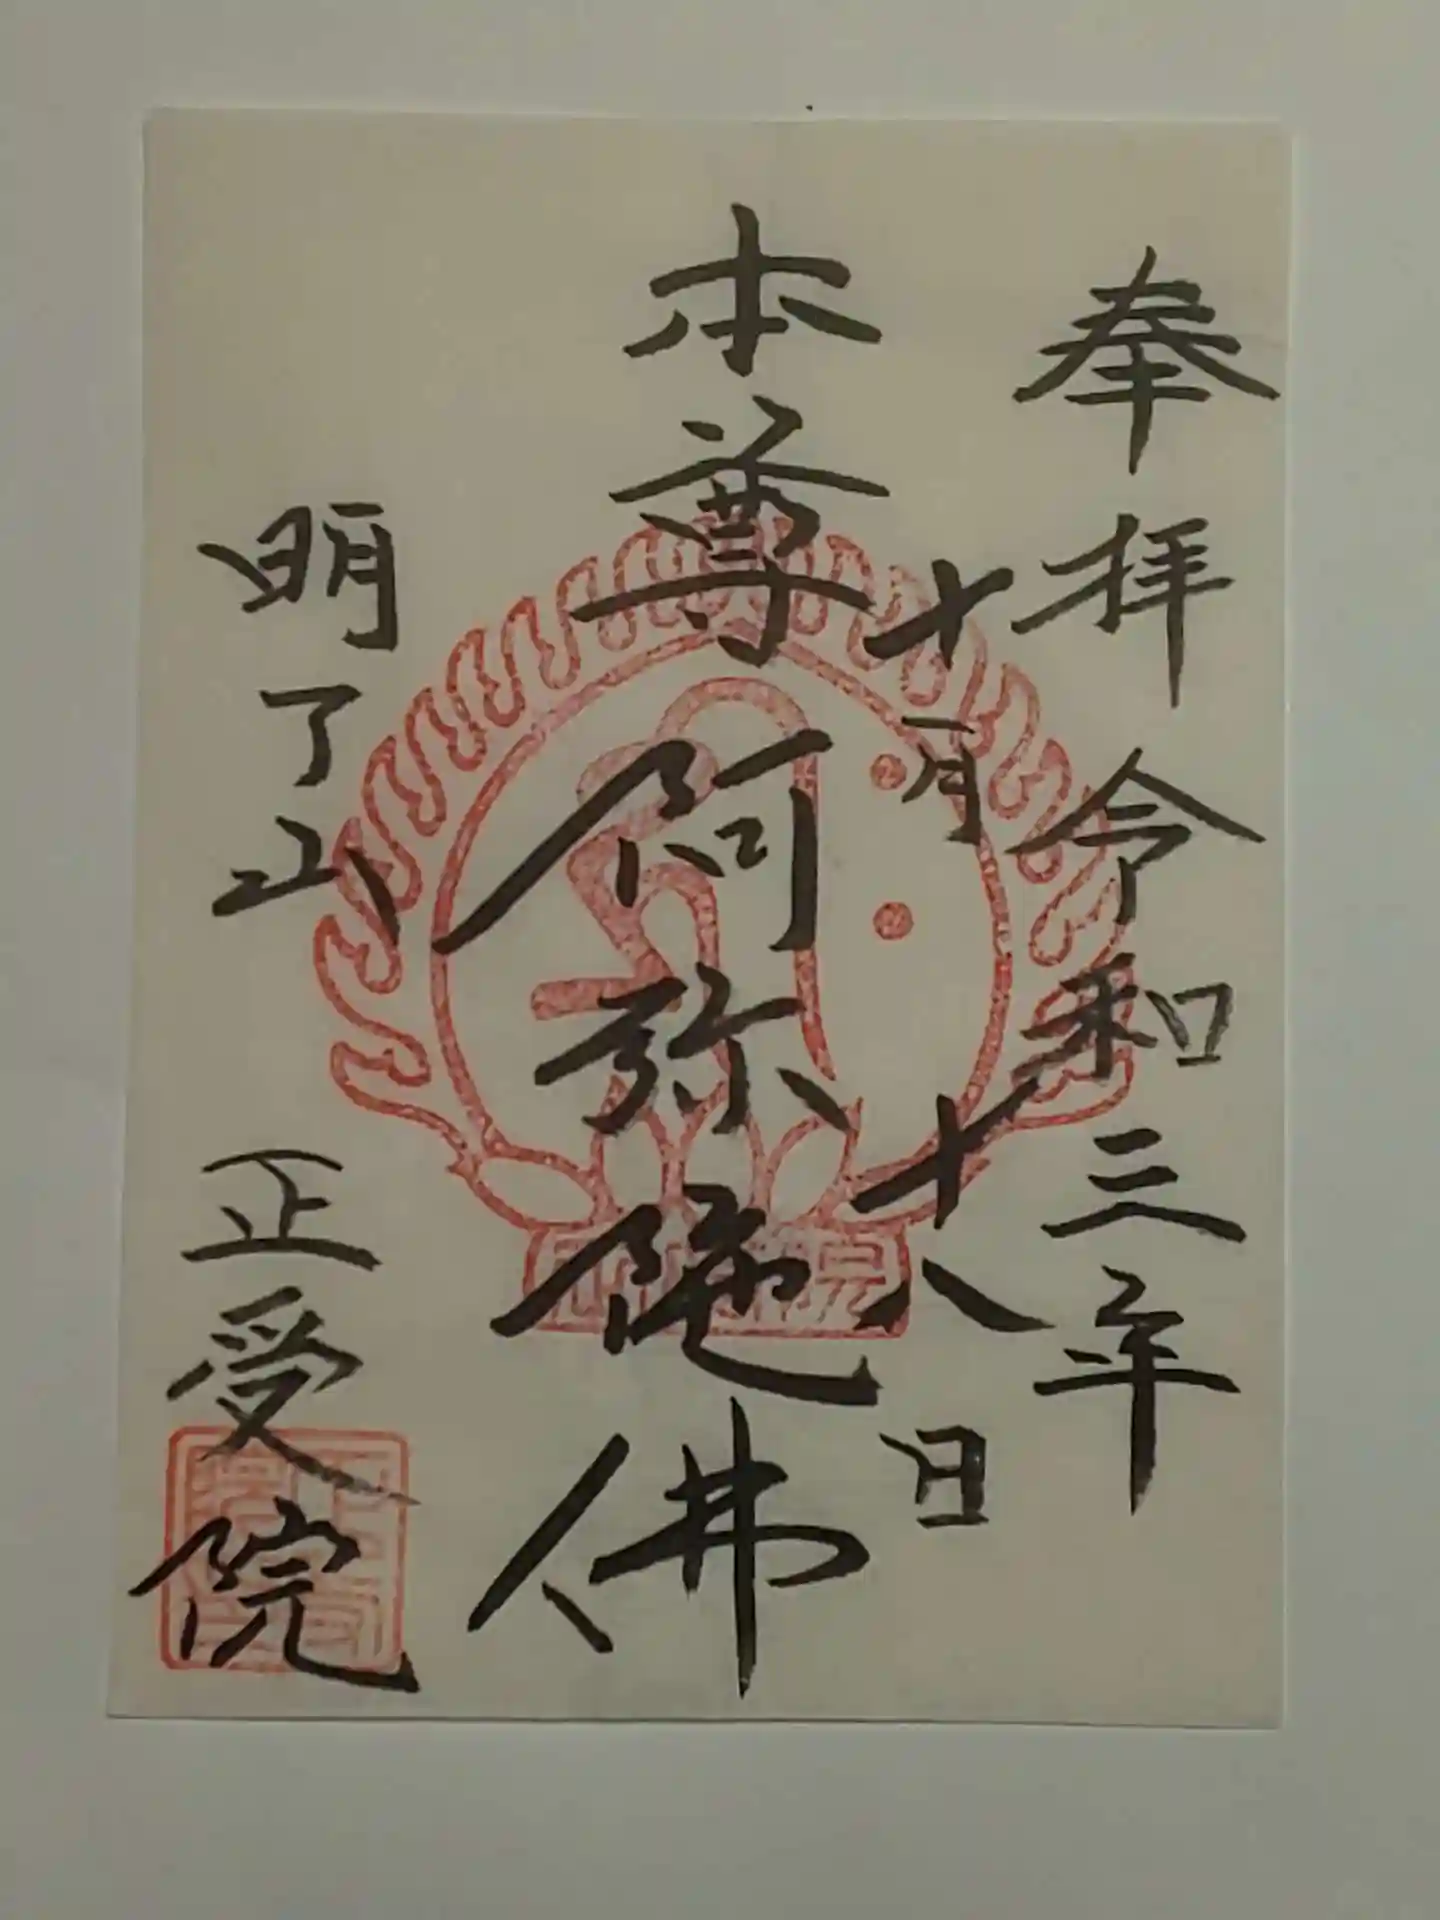 奉拝 令和三年
十一月十八日
本尊 阿弥陀佛
明了山 正受院